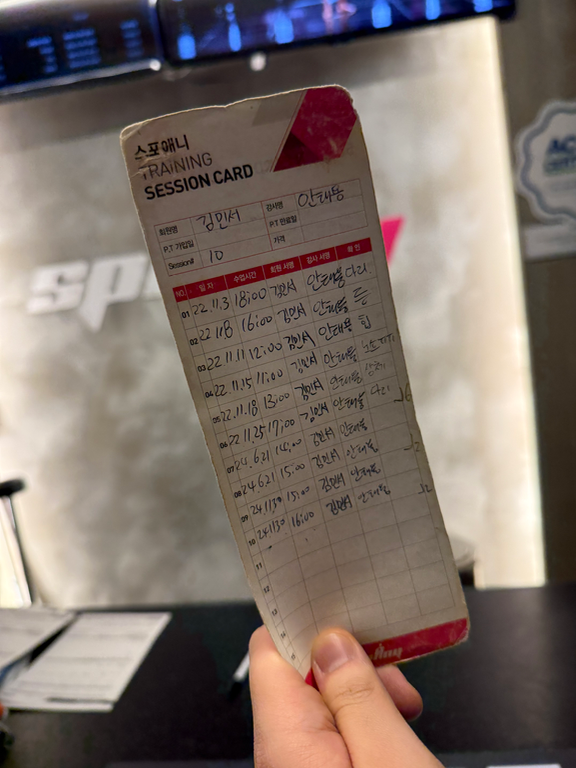 스포애니
TRAINING
SESSION CARD
회원명 김민서 강사명 안태용
P.T 가입일 P.T 만료일
Session# 10 가격
NO. 일 자 수업시간 회원 서명 강사 서명 확 인
01 22.11.3 18:00 김민서 안태용 다리
02 22.11.8 16:00 김민서 안태용 등
03 22.11.11 12:00 김민서 안태용 힙
04 22.11.15 11:00 김민서 안태용
05 22.11.18 13:00 김민서 안태용 상체
06 22.11.25 17:00 김민서 안태용 다리 6
07 24.6.21 14:00 김민서 안태용
08 24.6.21 15:00 김민서 안태용 2
09 24.11.30 15:00 김민서 안태용
10 24.11.30 16:00 김민서 안태용 2
11
12
13
14
15
sp
AC